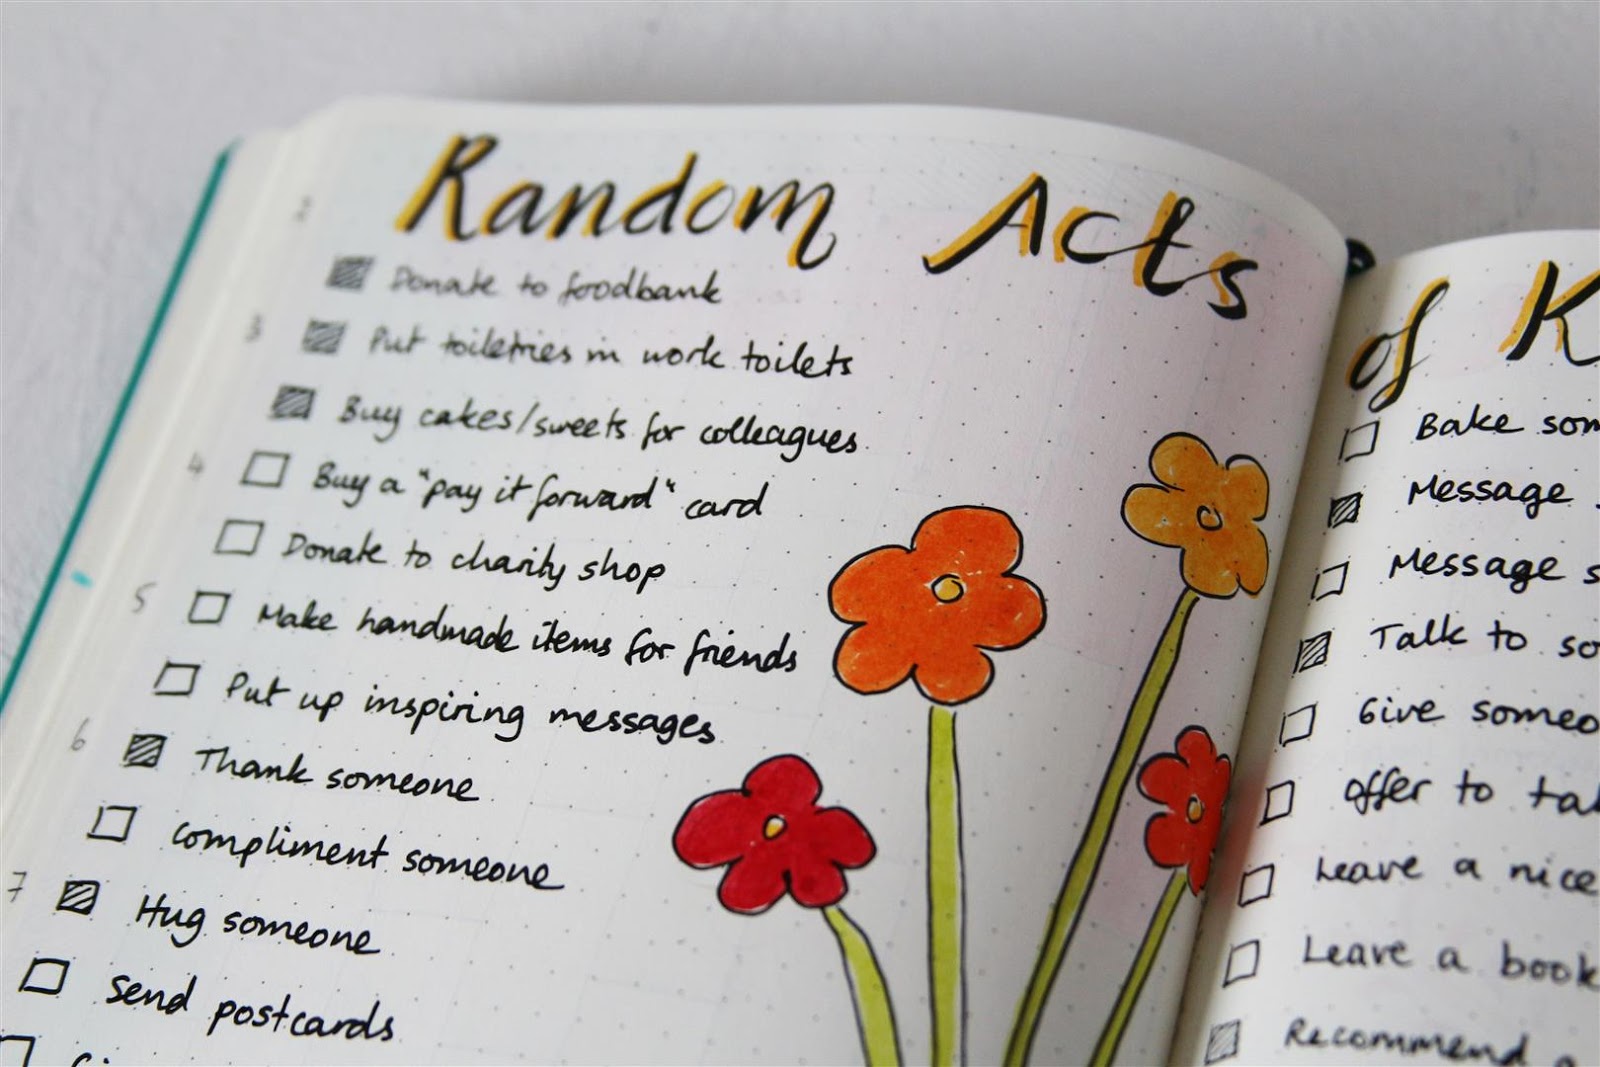 Random Acts
Donate to foodbank
3 Put toiletries in work toilets
Buy cakes/sweets for colleagues
4 Buy a "pay it forward" card
Donate to charity shop
5 Make handmade items for friends
Put up inspiring messages
6 Thank someone
compliment someone
7 Hug someone
Send postcards
of K
Bake som
Message
Message s
Talk to so
Give someo
offer to ta
Leave a nice
Leave a book
Recommend a